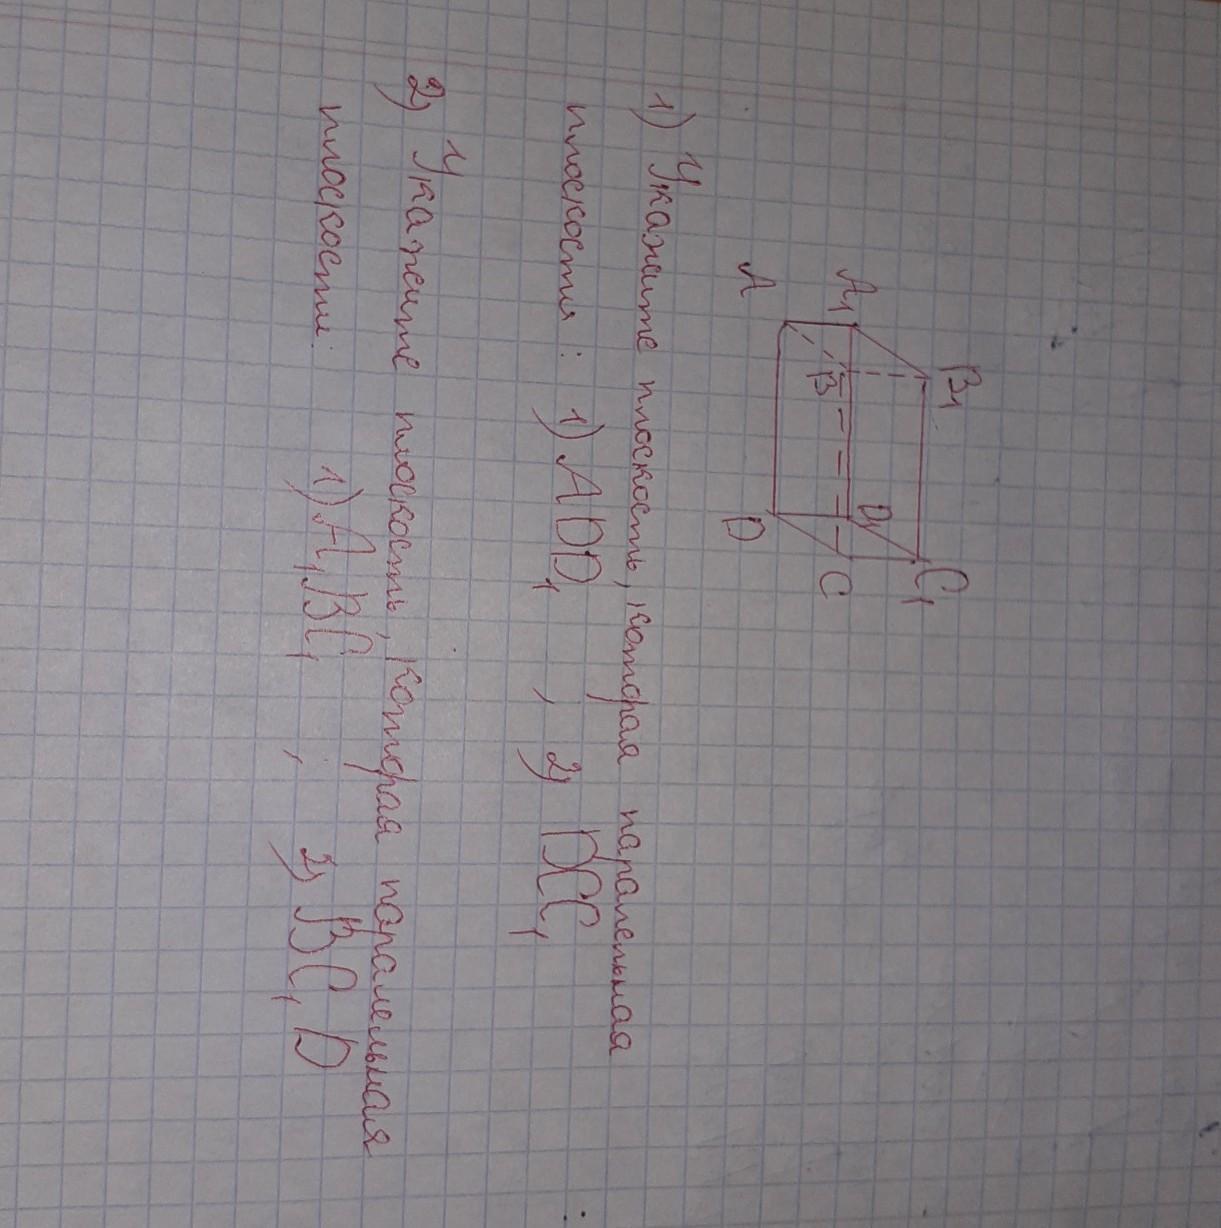 B₁ C₁
A₁ D₁
B C
A D
1) Укажите плоскость, которая парапельная
плоскости: 1) ADD₁ , 2) DCC₁
2) Укажите плоскость, которая паралельная
плоскости: 1) A₁BC₁ ; 2) BC₁D